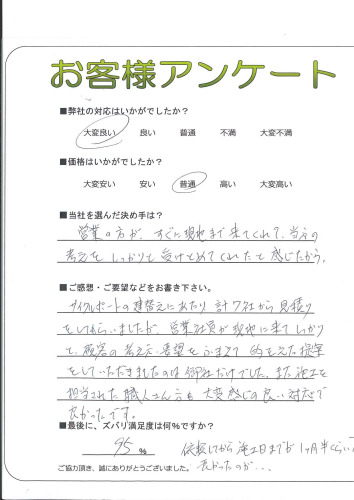 お客様アンケート
■弊社の対応はいかがでしたか?
大変良い 良い 普通 不満 大変不満
■価格はいかがでしたか?
大変安い 安い 普通 高い 大変高い
■当社を選んだ決め手は?
営業の方が、すぐに現地まで来てくれて、当方の
考えを しっかりと 受けとめて くれたと 感じたから。
■ご感想・ご要望などをお書き下さい。
サイクルポートの建替えにあたり 計7社から 見積り
をしてもらいましたが、営業社員が現地に来て しっかり
と、顧客の 考え方、要望を ふまえて 的をえた 提案
をして いただきましたのは 御社だけでした。また 施工を
担当された 職人さん方も 大変感じの良い 対応で
良かったです。
■最後に、ズバリ満足度は何%ですか?
95 %
依頼してから 施工日までが 1ヶ月半くらい
長かったのが・・・
ご協力頂き、誠にありがとうございました。